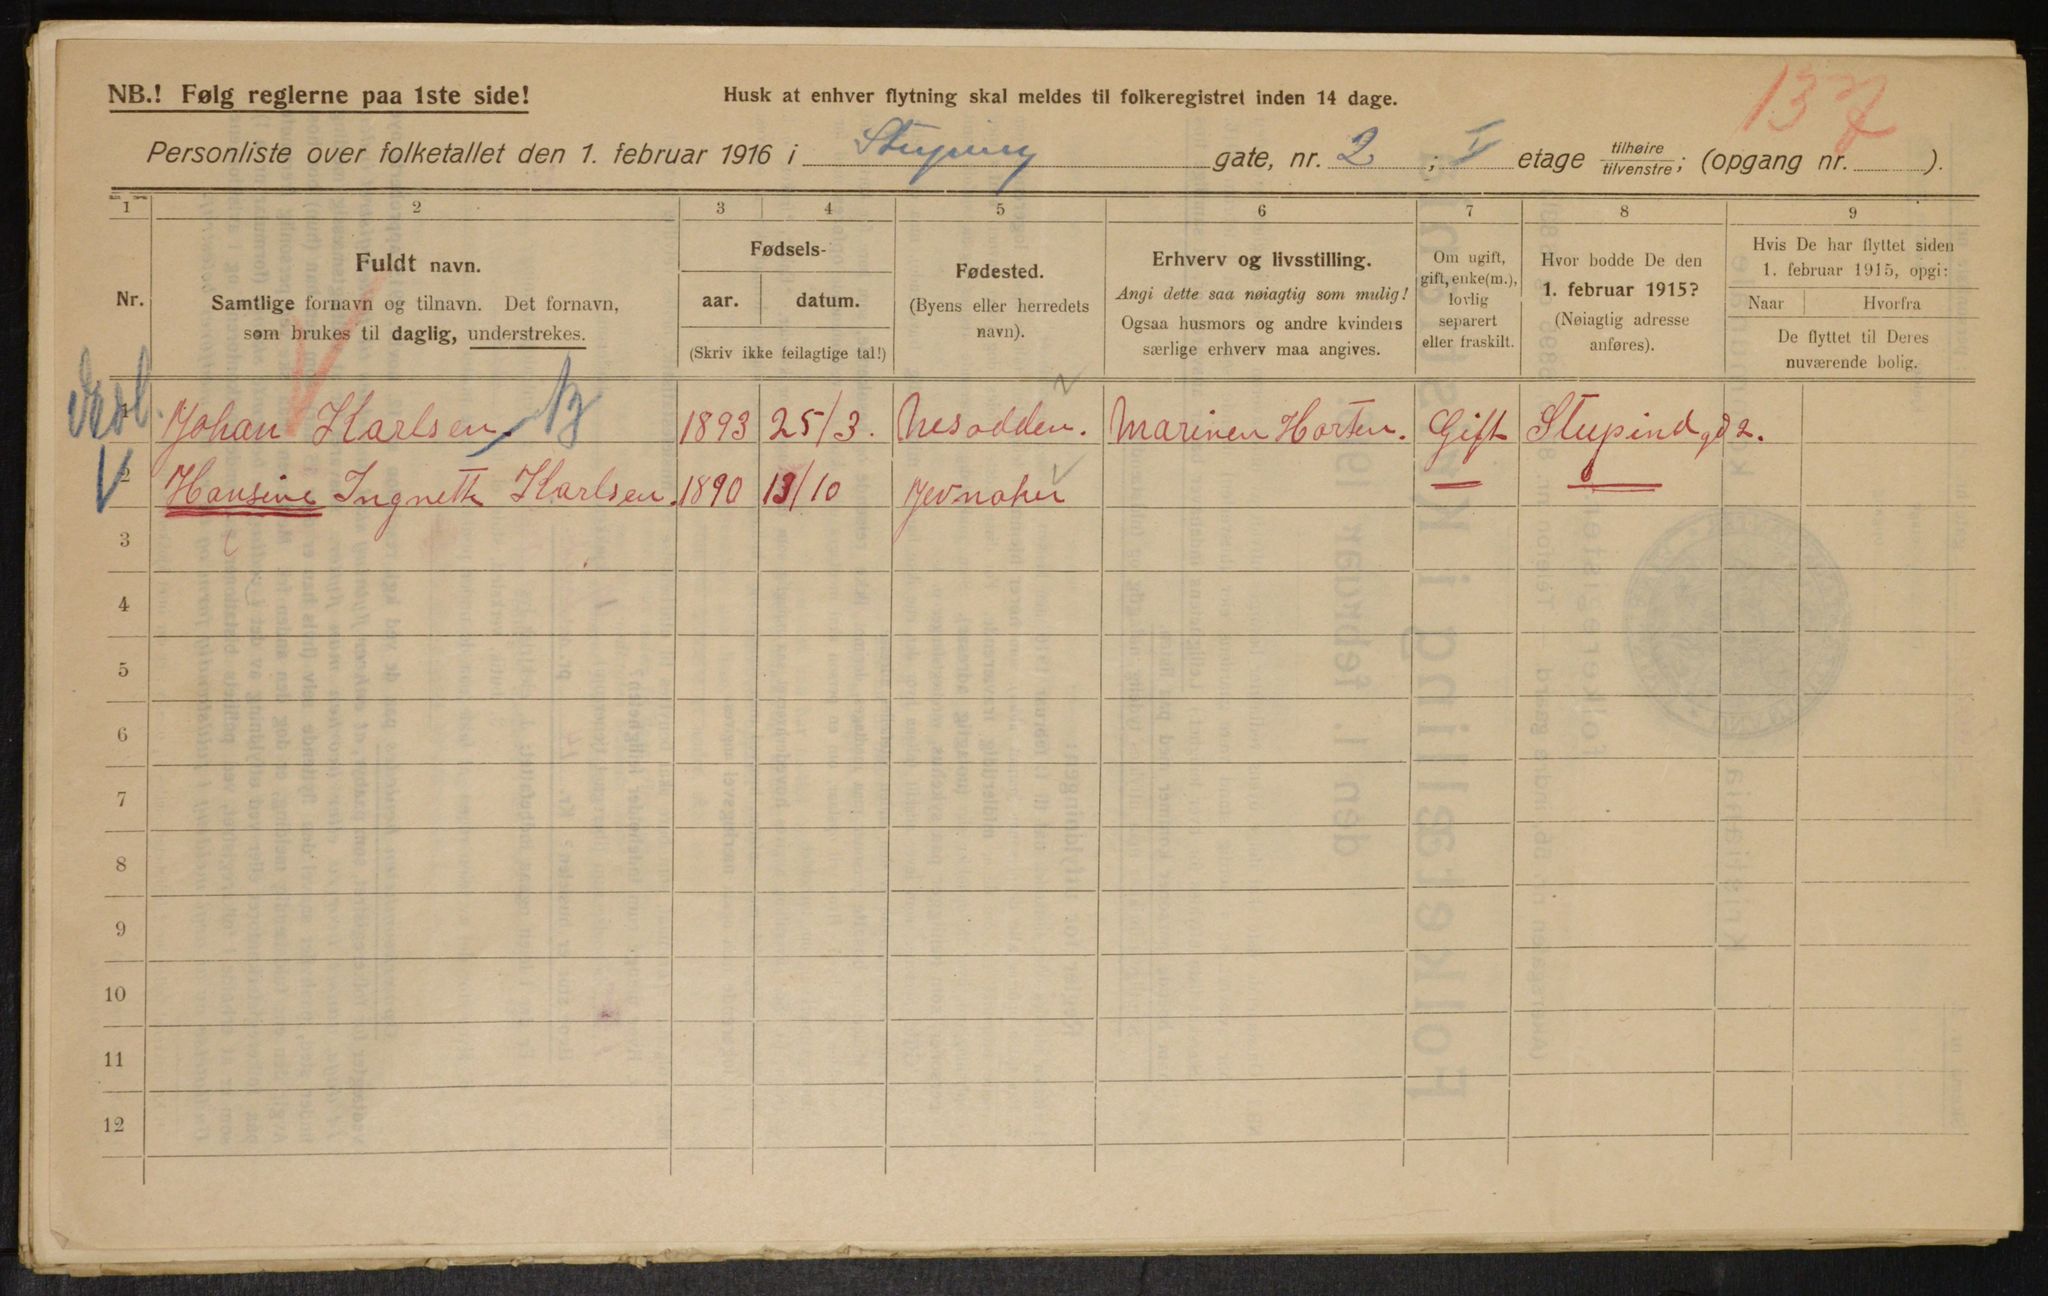 NB.! Følg reglerne paa 1ste side!
Husk at enhver flytning skal meldes til folkeregistret inden 14 dage.
137
Personliste over folketallet den 1. februar 1916 i Stuping gate, nr. 2 ; I etage tilhøire tilvenstre; (opgang nr. ).
1 2 3 4 5 6 7 8 9
Nr.
Fuldt navn.
Samtlige fornavn og tilnavn. Det fornavn,
som brukes til daglig, understrekes.
Fødsels-
aar. datum.
(Skriv ikke feilagtige tal!)
Fødested.
(Byens eller herredets
navn).
Erhverv og livsstilling.
Angi dette saa nøiagtig som mulig!
Ogsaa husmors og andre kvinders
særlige erhverv maa angives.
Om ugift,
gift, enke(m.),
lovlig
separert
eller fraskilt.
Hvor bodde De den
1. februar 1915?
(Nøiagtig adresse
anføres).
Hvis De har flyttet siden
1. februar 1915, opgi:
Naar Hvorfra
De flyttet til Deres
nuværende bolig.
1 Johan Karlsen. 1893 25/3. Nesodden. Marinen Horten. Gift Stupindgd 2.
2 Hansine Ingnette Karlsen. 1890 13/10 Jevnaker
3
4
5
6
7
8
9
10
11
12